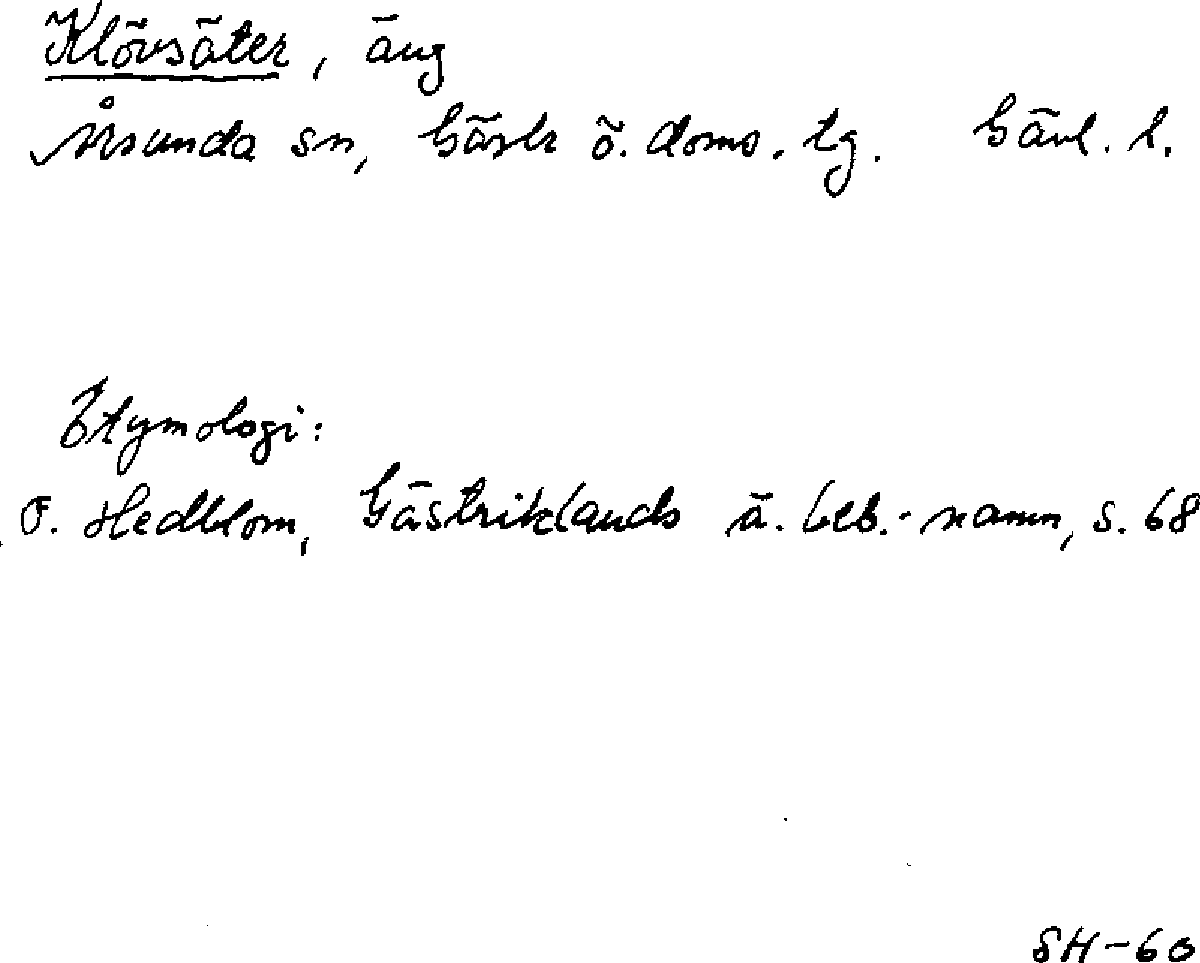 Klövsäter, äng
Årsunda sn, Gästr ö. doms. tg. Gävl. l.
Etymologi:
F. Hedblom, Gästriklands ä. beb.-namn, s. 68
SH-60